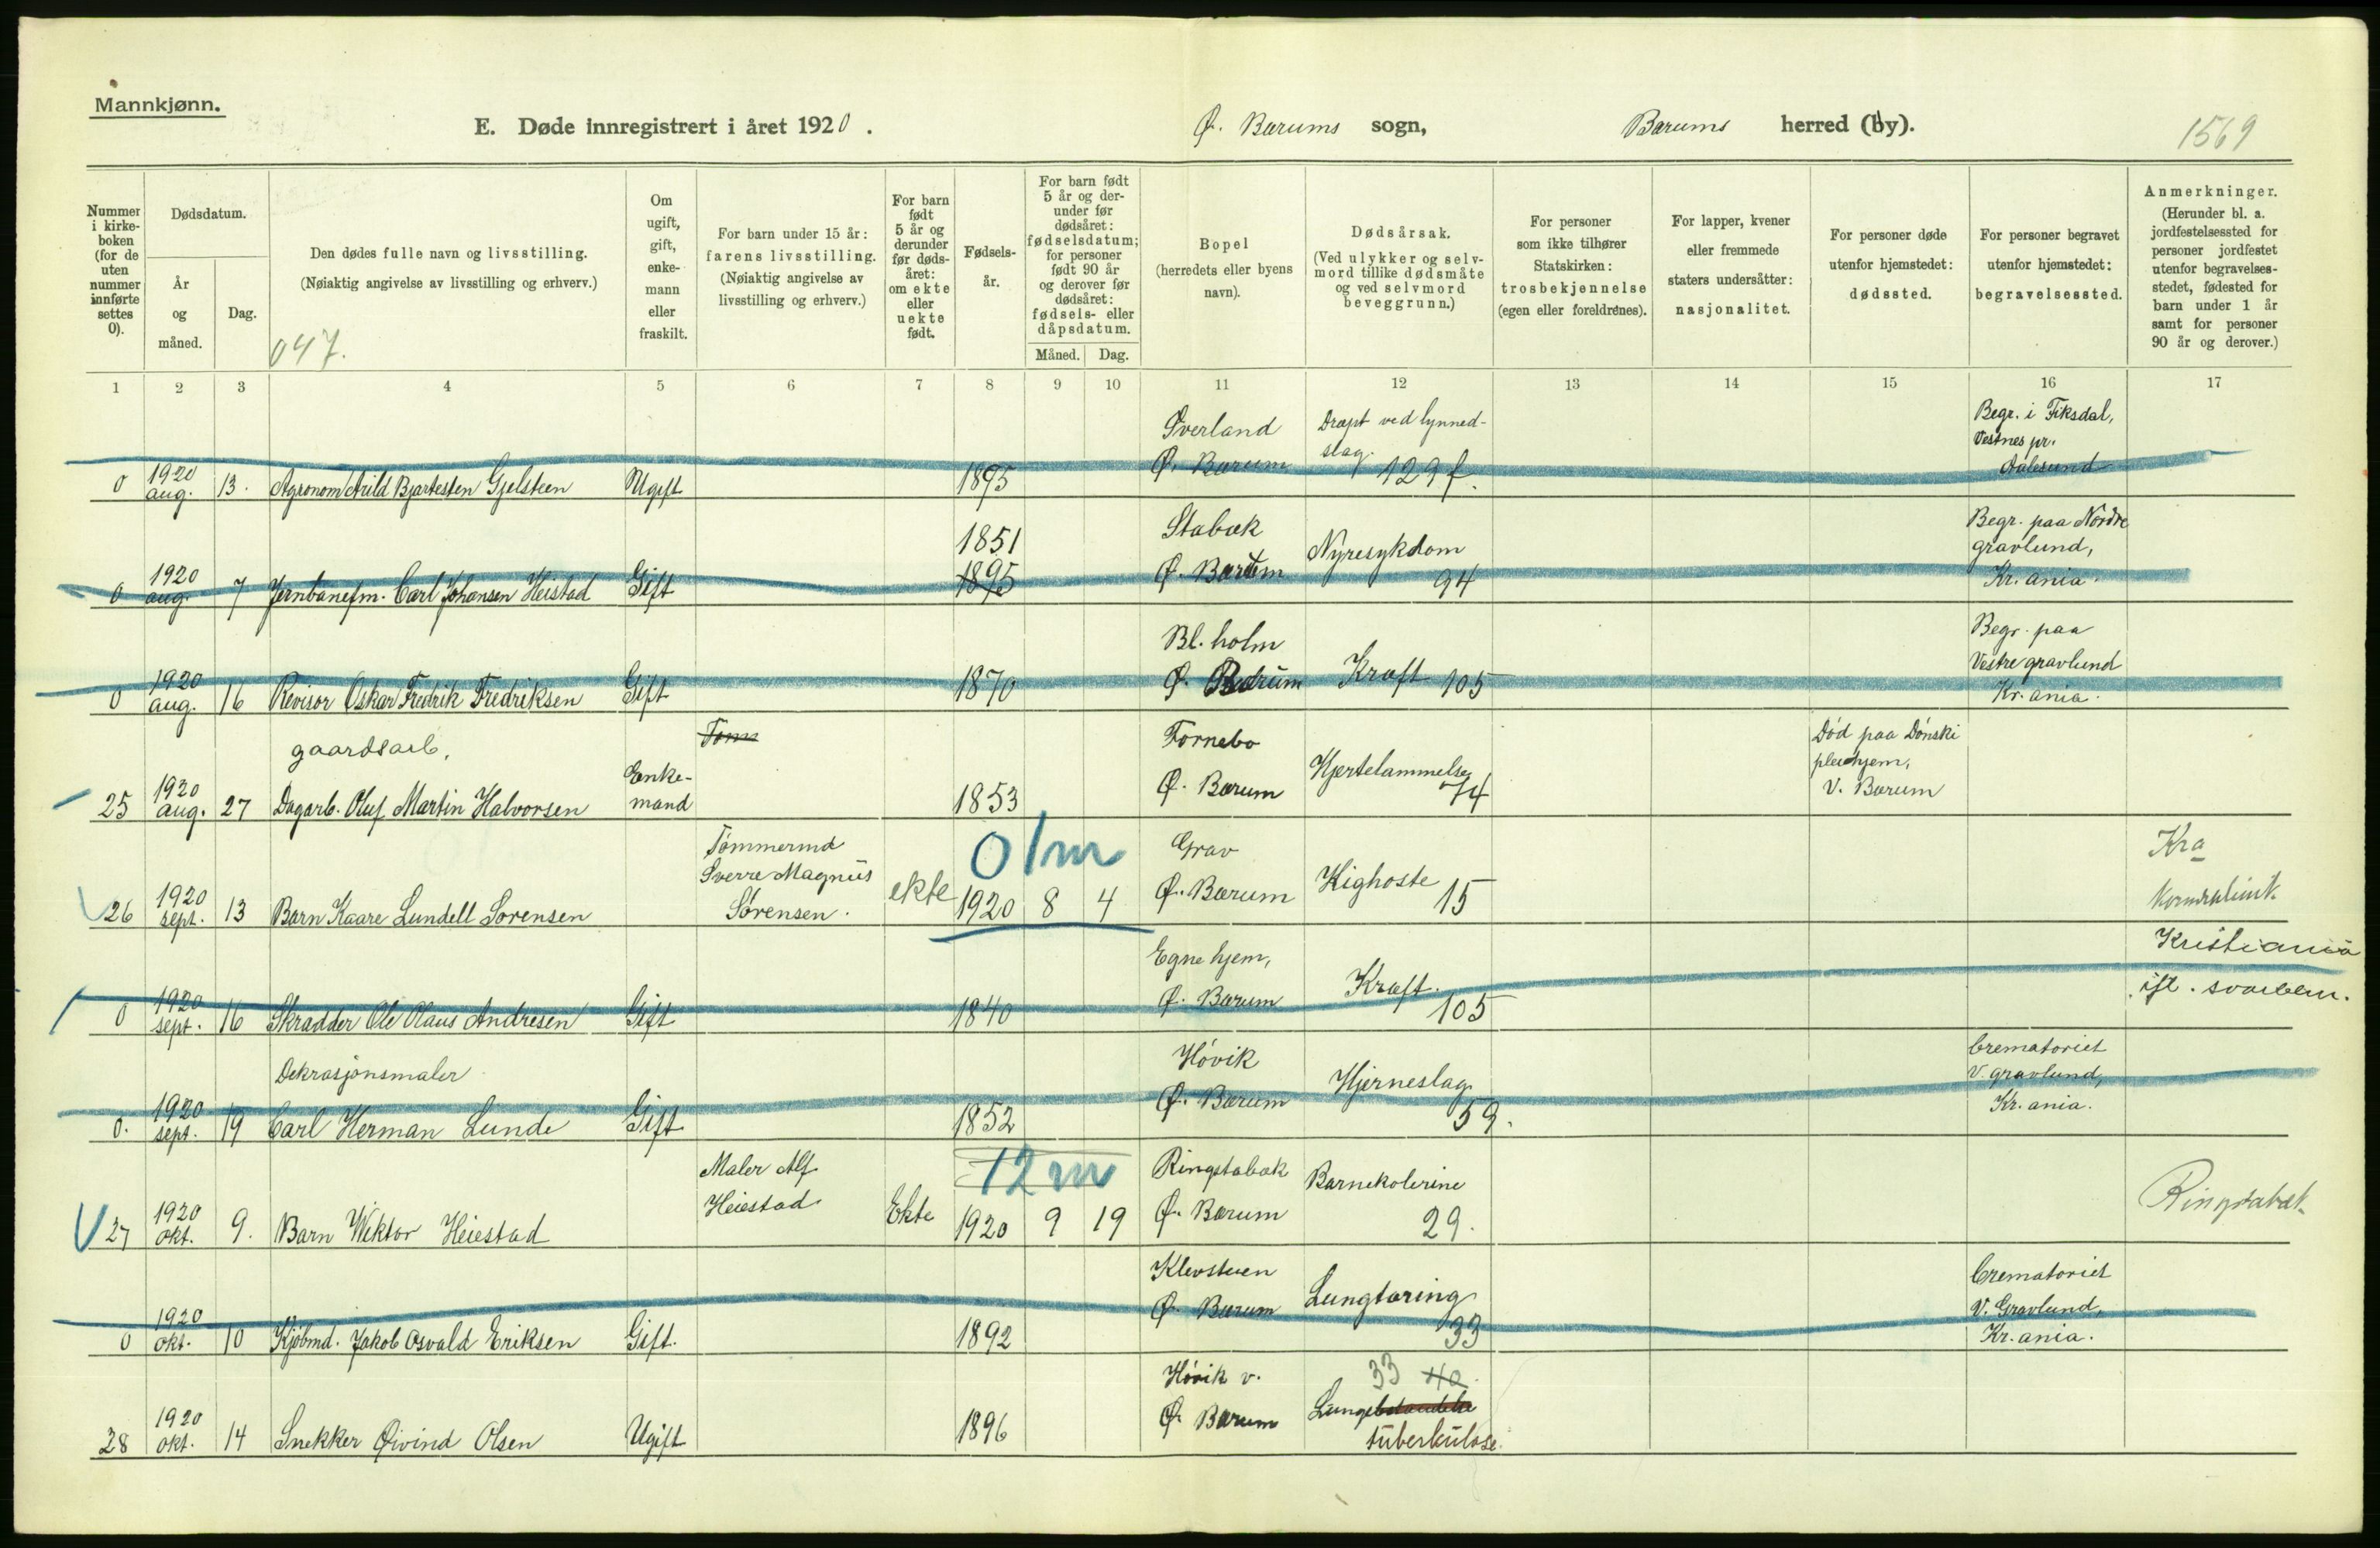 Mannkjønn.
E. Døde innregistrert i året 1920.
Ø. Bærums sogn,
Bærums herred (by).
1569
Nummer i kirkeboken (for de uten nummer innførte settes 0).
Dødsdatum.
År og måned.
Dag.
Den dødes fulle navn og livsstilling.
(Nøiaktig angivelse av livsstilling og erhverv.)
047.
Om ugift, gift, enkemann eller fraskilt.
For barn under 15 år: farens livsstilling.
(Nøiaktig angivelse av livsstilling og erhverv.)
For barn født 5 år og derunder før dødsåret: om ekte eller uekte født.
Fødselsår.
For barn født 5 år og derunder før dødsåret: fødselsdatum; for personer født 90 år og derover før dødsåret: fødsels- eller dåpsdatum.
Måned. Dag.
Bopel (herredets eller byens navn).
Dødsårsak.
(Ved ulykker og selvmord tillike dødsmåte og ved selvmord beveggrunn.)
For personer som ikke tilhører Statskirken: trosbekjennelse (egen eller foreldrenes).
For lapper, kvener eller fremmede staters undersåtter: nasjonalitet.
For personer døde utenfor hjemstedet: dødssted.
For personer begravet utenfor hjemstedet: begravelsessted.
Anmerkninger.
(Herunder bl. a. jordfestelsessted for personer jordfestet utenfor begravelsesstedet, fødested for barn under 1 år samt for personer 90 år og derover.)
1 2 3 4 5 6 7 8 9 10 11 12 13 14 15 16 17
0 1920 aug. 13. Agronom Arild Bjartesten Gjelsteen Ugift 1895 Øverland Ø. Bærum Dræpt ved lynnedslag. 129 f. Begr. i Fiksdal, Vestnes pr. Aalesund
0 1920 aug. 7 Jernbanefm. Carl Johansen Heistad Gift 1851 1895 Stabæk Ø. Bærum Nyresykdom 94 Begr. paa Nordre gravlund, Kr.ania.
0 1920 aug. 16 Revisor Oskar Fredrik Fredriksen Gift 1870 Bl. holm Ø. Bærum Kræft 105 Begr. paa Vestre gravlund Kr.ania.
25 1920 aug. 27 gaardsarb. Dagarb. Oluf Martin Halvorsen Enkemand Tøm 1853 Fornebo Ø. Bærum Hjertelammelse 74 Død paa Dønski pleiehjem, V. Bærum
26 1920 sept. 13 Barn Kaare Lundell Sørensen Tømmermd Sverre Magnus Sørensen. ekte 0/m 1920 8 4 Grav Ø. Bærum Kighoste 15 Kra
0 1920 sept. 16 Skrædder Ole Olaus Andresen Gift 1840 Egne hjem, Ø. Bærum Kræft. 105 Kristiania ifl.
0. 1920 sept. 19 Dekrasjonsmaler Carl Herman Lunde Gift 1852 Høvik Ø. Bærum Hjerneslag 59. Crematoriet V. gravlund, Kr.ania.
27 1920 okt. 9. Barn Wiktor Heiestad Maler Alf Heiestad Ekte 12 m 1920 9 19 Ringstabæk Ø. Bærum Barnekolerine 29. Ringstabæk
0 1920 okt. 10 Kjøbmd. Jakob Osvald Eriksen Gift. 1892 Klevstuen Ø. Bærum Lungtæring 33 Crematoriet V. Gravlund, Kr.ania.
28 1920 okt. 14 Snekker Øivind Olsen Ugift 1896 Høvik v. Ø. Bærum 33 40. Lunge tuberkulose.